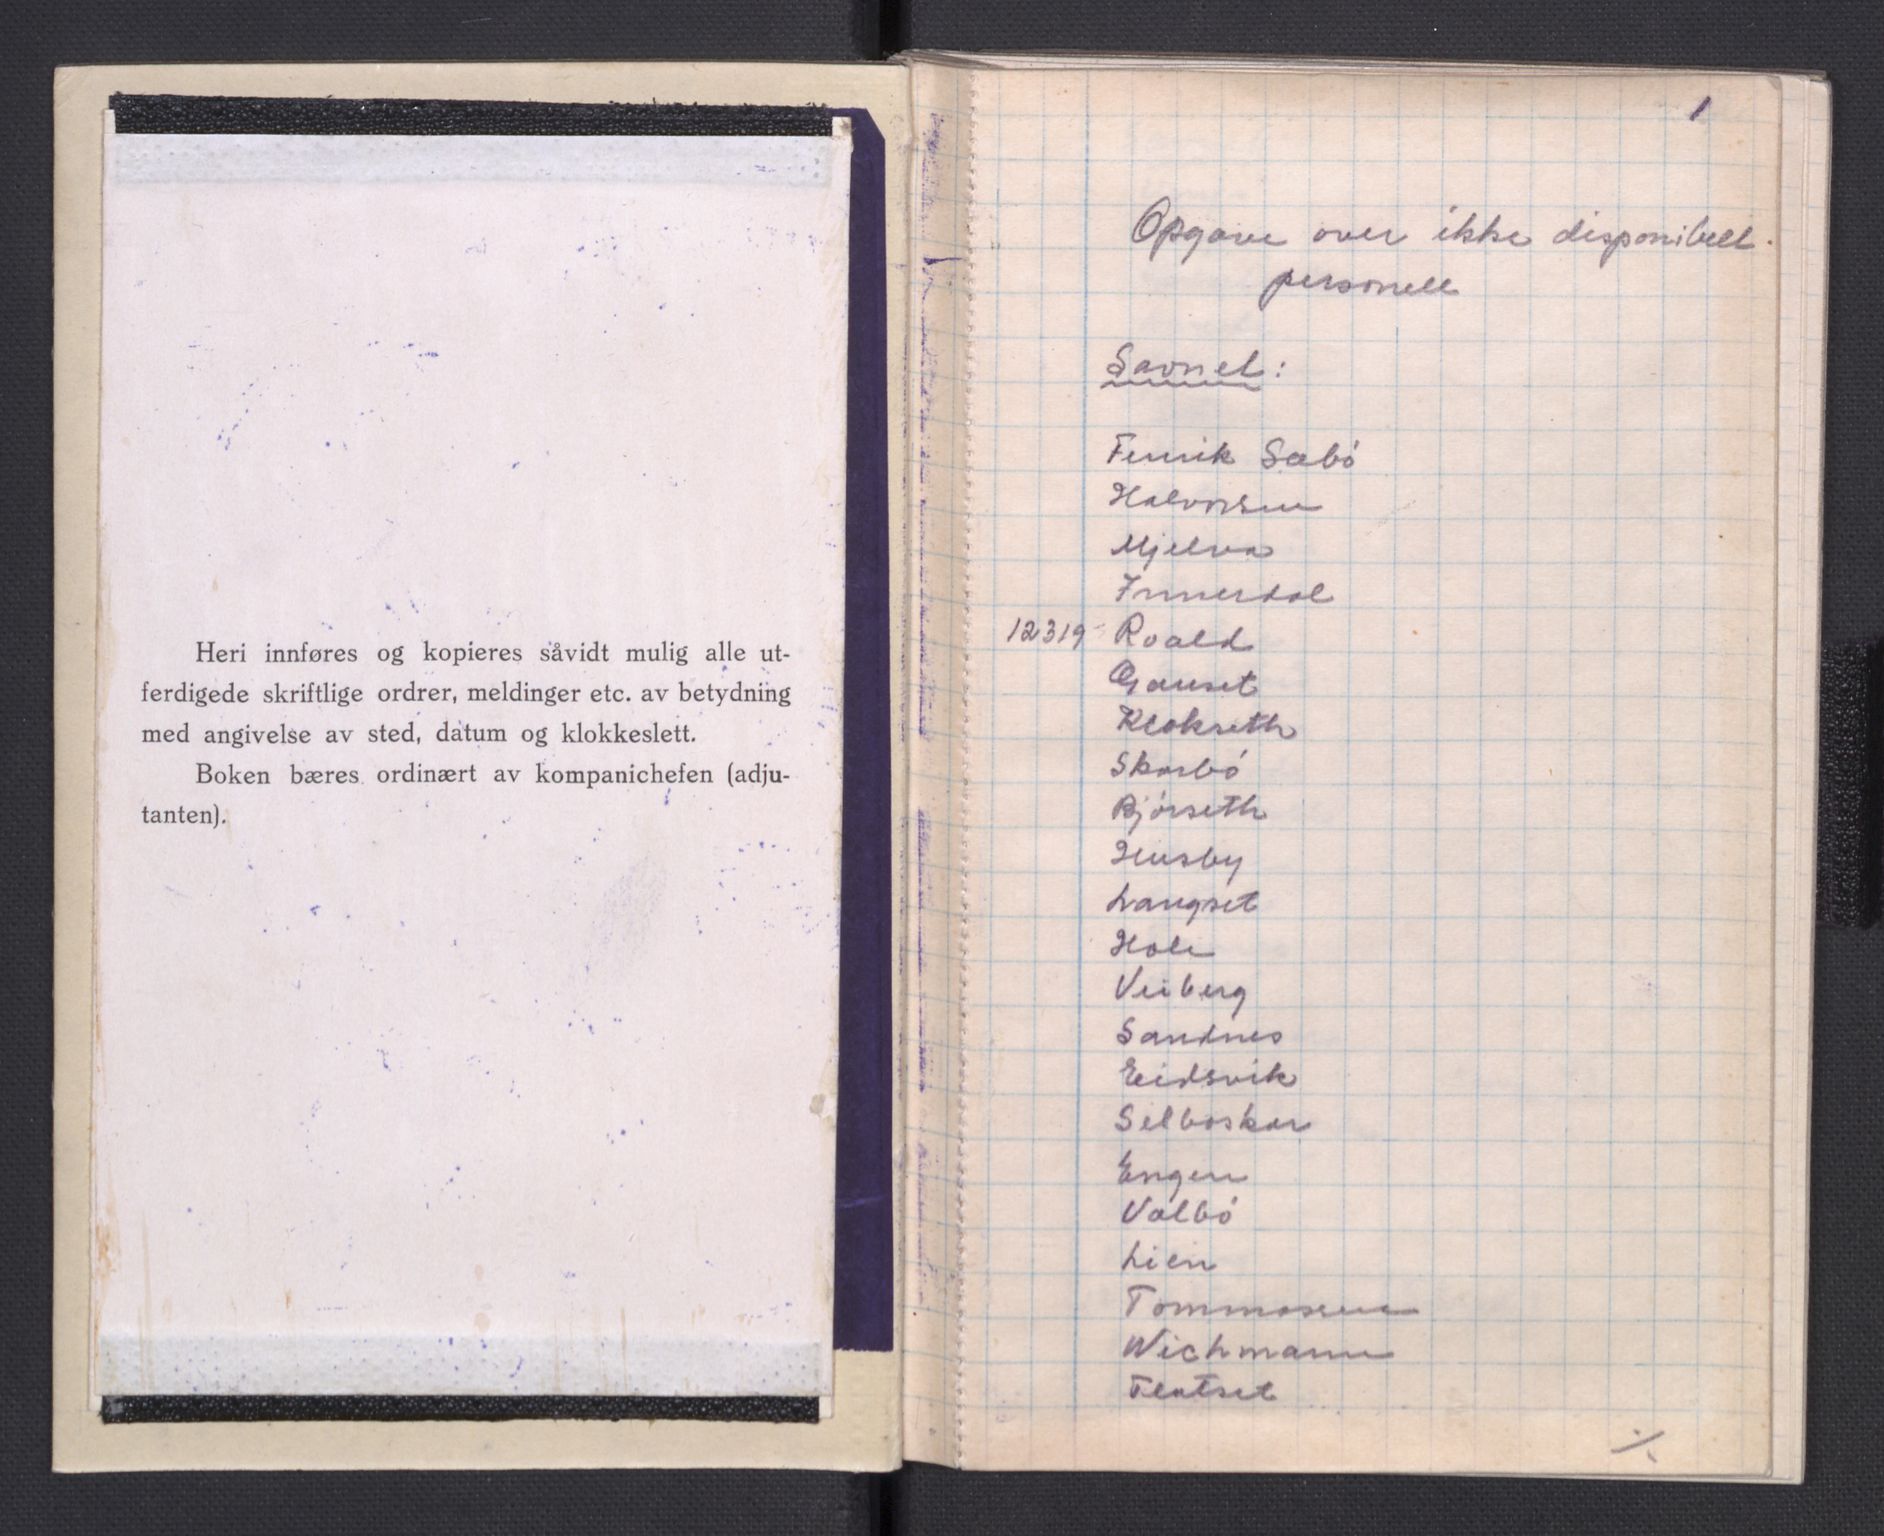 Heri innføres og kopieres såvidt mulig alle ut-
ferdigede skriftlige ordrer, meldinger etc. av betydning
med angivelse av sted, datum og klokkeslett.
Boken bæres ordinært av kompanichefen (adju-
tanten).
1
Opgave over ikke disponibell
personell
Savnet:
Fenrik Sæbö
Halvorsen
Mjelva
Innerdal
12319 Roald
Gauset
Klokseth
Skorbö
Bjórseth
Husby
Langset
Hole
Veiberg
Sandnes
Eidsvik
Selboskar
Engen
Valbó
Lien
Tommasen
Wichmann
Flatset